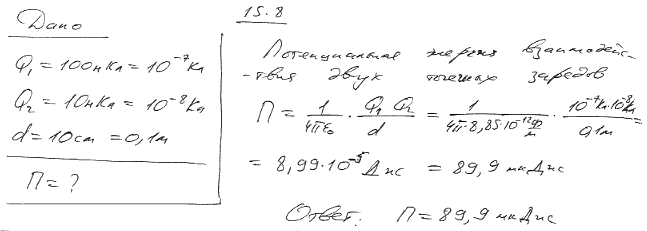 Дано
Q₁ = 100нКл = 10⁻⁷Кл
Q₂ = 10нКл = 10⁻⁸Кл
d = 10см = 0,1м
П = ?
15.8
Потенциальная энергия взаимодейс-
-твия двух точечных зарядов
П = 1/(4πε₀) · Q₁Q₂/d = 1/(4π·8,85·10⁻¹² Ф/м) · 10⁻⁷Кл·10⁻⁸Кл/0,1м =
= 8,99·10⁻⁵ Дж = 89,9 мкДж
Ответ: П = 89,9 мкДж